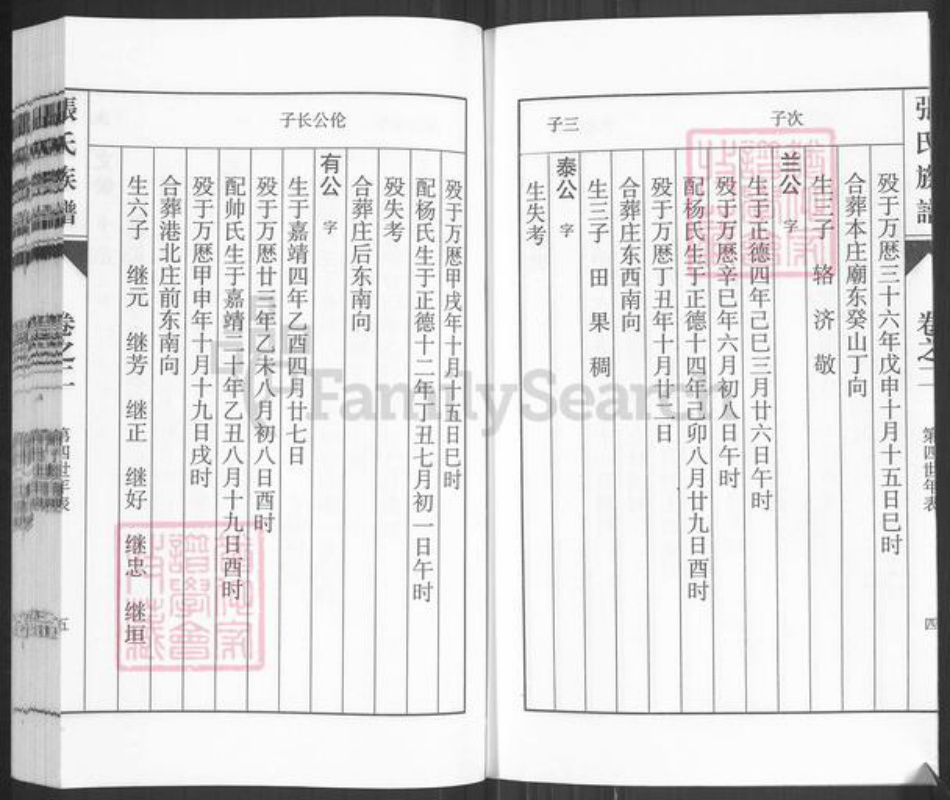 張氏族譜
卷之二
第四世年表
四
殁于万愿三十六年戊申十月十五日巳时
合葬本庄廟东癸山丁向
生三子 辂 济 敬
次子
兰公 字
生于正德四年己巳三月廿六日午时
殁于万愿辛巳年六月初八日午时
配杨氏生于正德十四年己卯八月廿九日酉时
殁于万愿丁丑年十月廿二日
合葬庄东西南向
生三子 田 果 稠
三子
泰公 字
生失考
殁于万愿甲戌年十月十五日巳时
配杨氏生于正德十二年丁丑七月初一日午时
殁失考
合葬庄后东南向
伦公长子
有公 字
生于嘉靖四年乙酉四月廿七日
殁于万愿廿三年乙未八月初八日酉时
配帅氏生于嘉靖二十年乙丑八月十九日酉时
殁于万愿甲申年十月十九日戌时
合葬港北庄前东南向
生六子 继元 继芳 继正 继好 继忠 继垣
張氏族譜
卷之二
第四世年表
五
FamilySearch